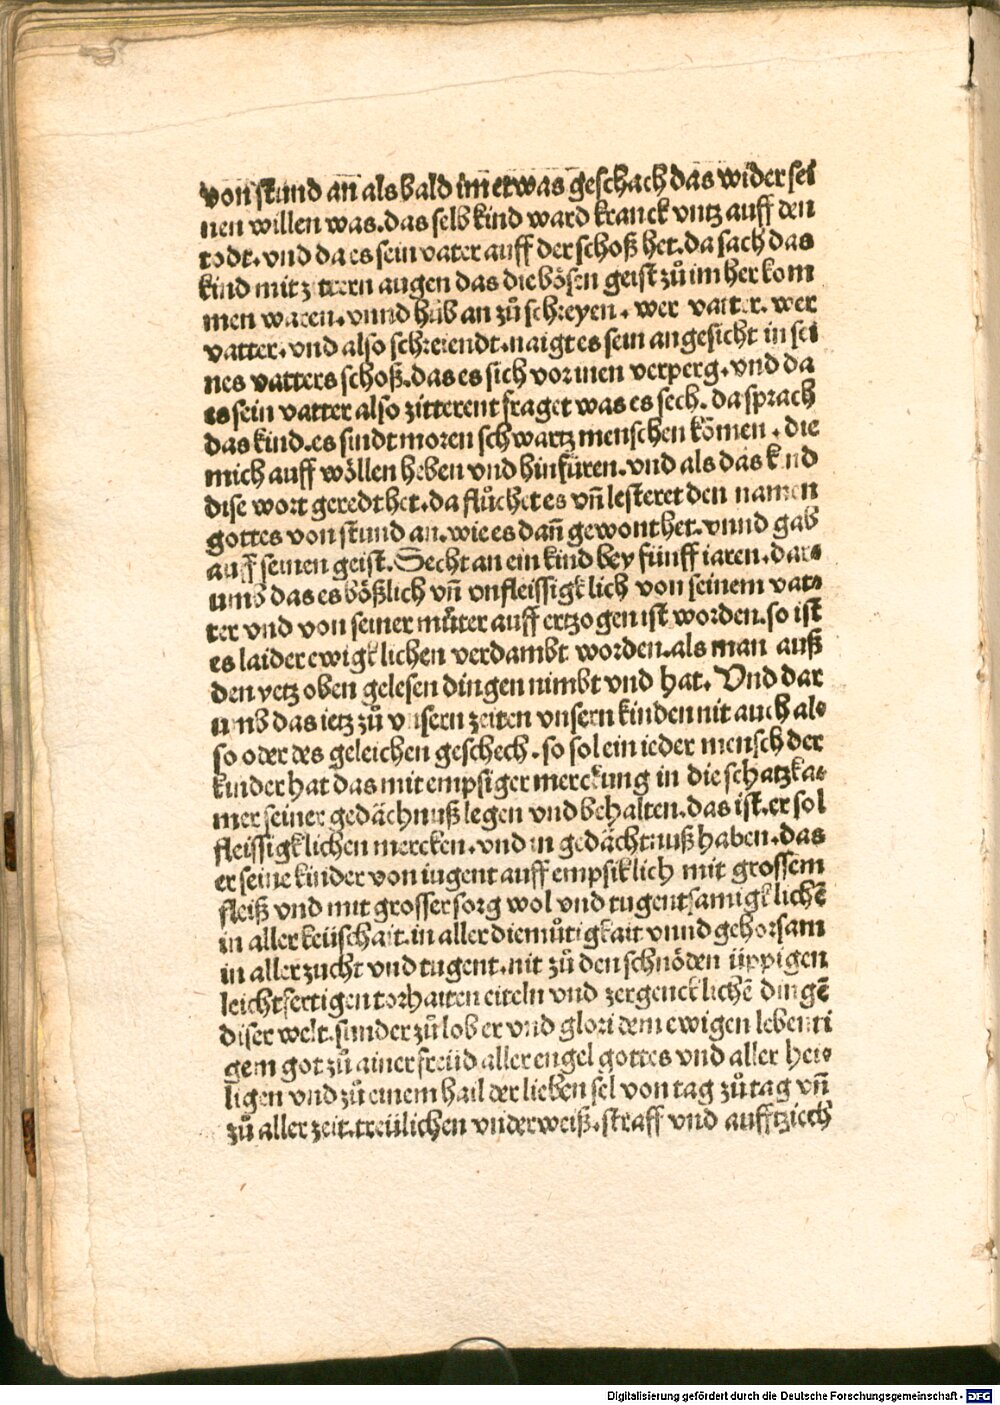 von stund an als bald im etwas geschach das wider sei
nen willen was. das selb kind ward kranck vntz auff den
todt. vnd da es sein vater auff der schoß het. da sach das
kind mit zittern augen das die bösen geist zů im her kom
men waren. vnnd hůb an zů schreyen. wer vatter. wer
vatter. vnd also schreiendt. naigt es sein angesicht in sei
nes vatters schoß. das es sich vor inen verperg. vnd da
es sein vatter also zitterent fraget was es sech. da sprach
das kind. es sindt moren schwartz menschen kömen. die
mich auff wöllen heben vnd hinfüren. vnd als das kind
dise wort geredt het. da flůchet es vñ lesteret den namen
gottes von stund an. wie es dañ gewont het. vnnd gab
auff seinen geist. Secht an ein kind bey fünff iaren. dar⸗
umb das es bößlich vñ vnfleissigklich von seinem vat⸗
ter vnd von seiner můter auff ertzogen ist worden. so ist
es laider ewigklichen verdambt worden. als man auß
den yetz oben gelesen dingen nimbt vnd hat. Vnd dar
umb das ietz zů vnsern zeiten vnsern kinden nit auch al⸗
so oder des geleichen geschech. so sol ein ieder mensch der
kinder hat das mit empsiger merckung in die schatzka⸗
mer seiner gedächnuß legen vnd behalten. das ist. er sol
fleissigklichen mercken. vnd in gedächtnuß haben. das
er seine kinder von iugent auff empsiklich mit grossem
fleiß vnd mit grosser sorg wol vnd tugentsamigklichẽ
in aller keüschait. in aller diemůtigkait vnnd gehorsam
in aller zucht vnd tugent. nit zů den schnöden üppigen
leichtfertigen torhaiten eiteln vnd zergencklichẽ dingẽ
diser welt. sunder zů lob er vnd glori dem ewigen lebenti
gem got zů ainer freüd aller engel gottes vnd aller hei⸗
ligen vnd zů einem hail der lieben sel von tag zů tag vñ
zů aller zeit. treülichen vnderweiß. straff vnd aufftziech
Digitalisierung gefördert durch die Deutsche Forschungsgemeinschaft - DFG